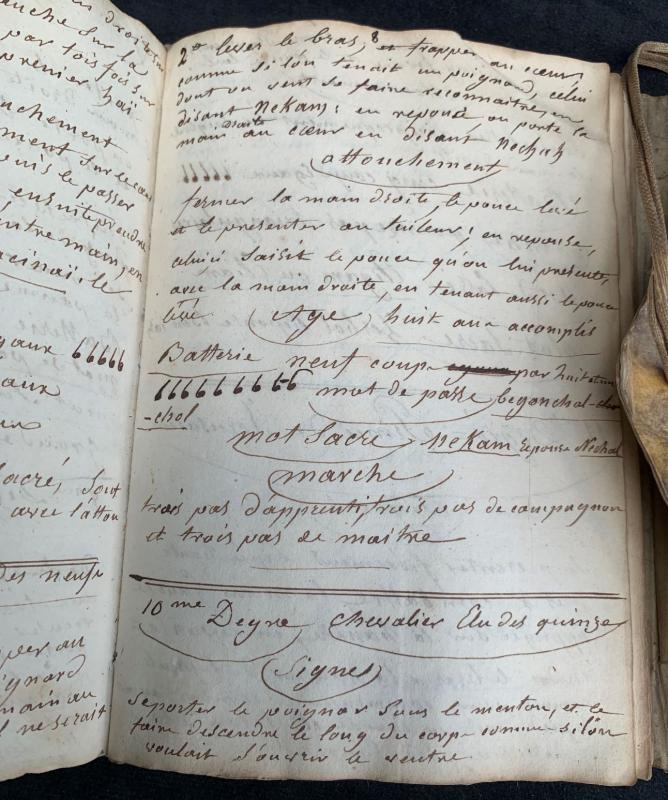 droite
anche sur la
par tois fois sur
premier hai
ouchement
ment sur le cœur
puis le passer
ensuite prendre
entre main, en
acinai, le
yaux 66666
aux
sacré, sont
avec l'atton
des neufs
per au
ignard
main au
il ne serait
2º lever le bras, & frapper au cœur,
comme si l'on tenait un poignard, celui
dont on veut se faire reconnaitre, en
disant Nekam; en reponse on porte la
main droite au cœur en disant Nechah
attouchement
fermer la main droite, le pouce levé
et le presenter au tuileur; en reponse,
celuici saisit le pouce qu'on lui presente,
avec la main droite, en tenant aussi le pouce
levé. Age huit ans accomplis
Batterie neuf coups par huit et un
66666666-6 mot de passe begonchal-
-chol
mot Sacré Nekam reponse Nechal
marche
trois pas d'apprenti, trois pas de compagnon
et trois pas de maitre
10me Degre chevalier Elu des quinze
Signes
reporter le poignar sous le menton, et le
faire descendre le long du corps comme si l'on
voulait s'ouvrir le ventre